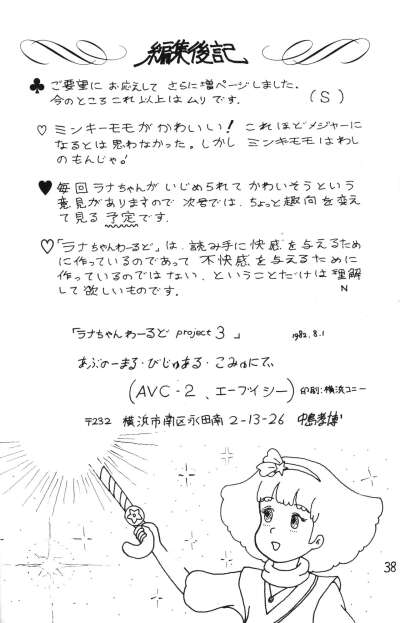 編集後記
♣ ご要望に お応えして さらに増ページしました。
今のところこれ以上はムリです。 (S)
♡ ミンキーモモがかわいい! これほどメジャーに
なるとは思わなかった。しかし ミンキーモモはわし
のもんじゃ。
♥ 毎回 ラナちゃんが いじめられて かわいそうという
意見がありますので 次号では、ちょっと趣向を変え
て見る 予定です。
♡「ラナちゃんわーるど」は、読み手に快感を与えるため
に作っているのであって 不快感を与えるために
作っているのではない、ということだけは理解
して欲しいものです。 N
「ラナちゃんわーるど project 3 」 1982.8.1
あぶのーまる・びじゅある・こみゅにてぃ
(AVC-2、エーブイシー) 印刷:横浜コニー
〒232 横浜市南区永田南 2-13-26
38